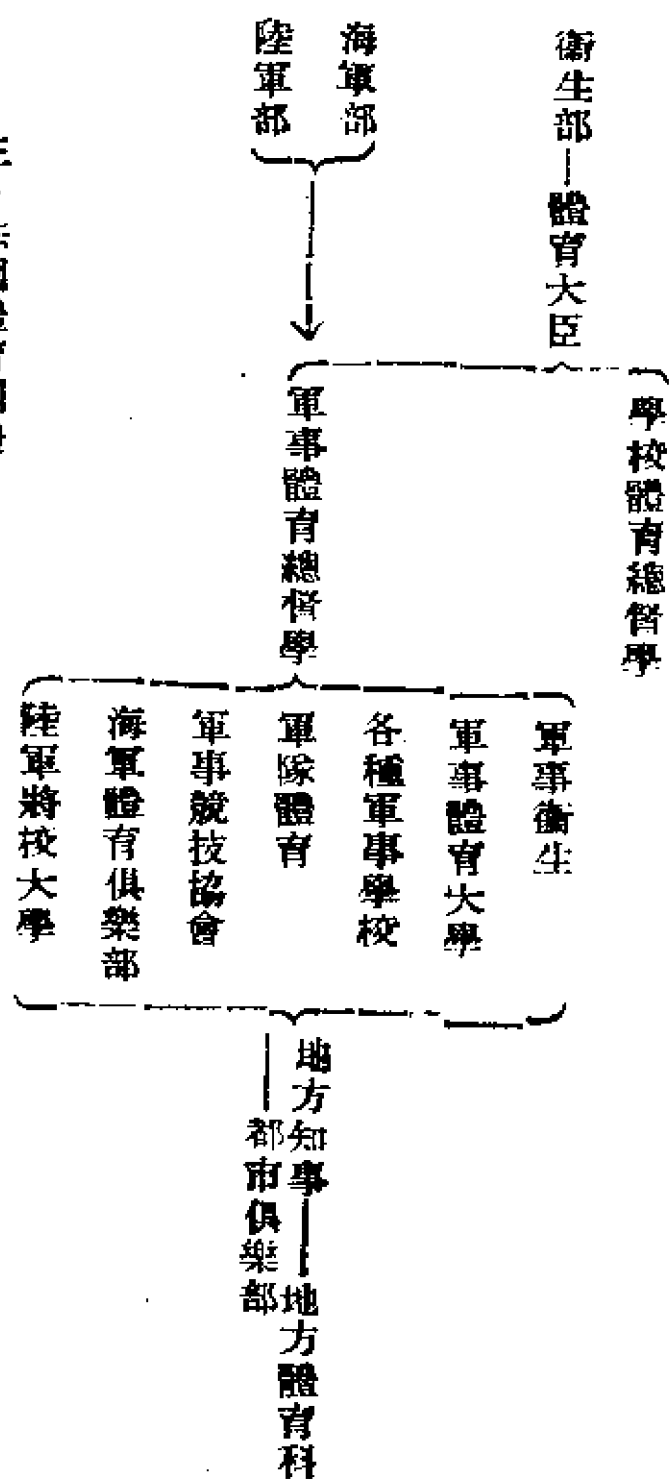 衞生部—體育大臣
學校體育總督學
海軍部
陸軍部
軍事體育總督學
軍事衞生
軍事體育大學
各種軍事學校
軍隊體育
軍事競技協會
海軍體育俱樂部
陸軍將校大學
地方知事—地方體育科
都市俱樂部